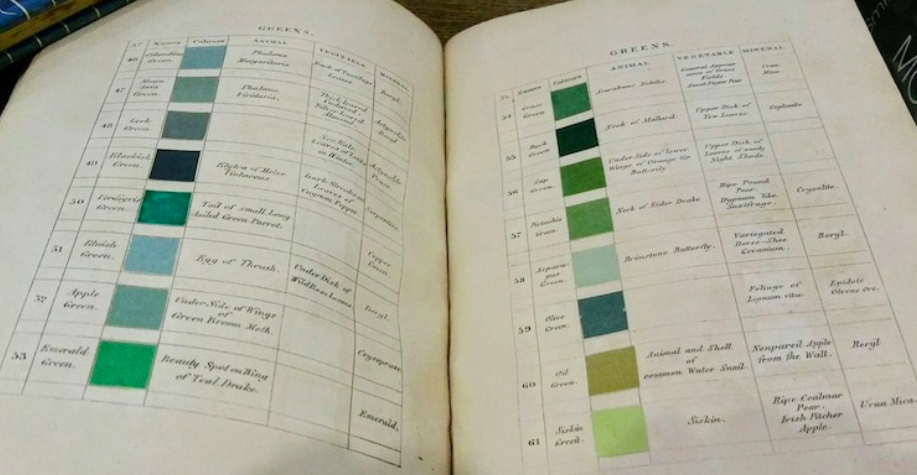 GREENS.
Nº Names Colours ANIMAL VEGETABLE MINERAL
46
Green.
Phalæna
Margaritaria.
Back of Tussilage
Leaves.
Beryl.
47
Green
Phalæna
Viridaria.
Thick leaved
Silver leaved
Almond.
48
Leek
Green.
Leaves of Leek
in Winter.
49
Blackish
Green.
Elytra of Meloe
Violaceus.
Dark Streaks on
Leaves of
Cayenne Pepper
Serpentine.
50
Verdigris
Green.
Tail of small Long
tailed Green Parrot.
Copper
Green.
51
Bluish
Green.
Egg of Thrush.
Under Disk of
Wild Rose leaves
Beryl.
52
Apple
Green.
Under Side of Wings
of
Green Broom Moth.
Crysoprase.
53
Emerald
Green.
Beauty Spot on Wing
of Teal Drake.
Emerald.
GREENS.
No. Names Colours ANIMAL VEGETABLE MINERAL
54
Grass
Green.
Scarabæus Nobilis.
General Appear-
ance of Grass
Fields
Uran
Mica.
55
Duck
Green.
Neck of Mallard.
Upper Disk of
Yew Leaves.
Ceylanite
56
Sap
Green.
Under Side of lower
Wings of Orange tip
Butterfly
Upper Disk of
Leaves of woody
Night Shade.
57
Pistachio
Green.
Neck of Eider Drake
Ripe Pound
Pear.
Hypnum like
Saxifrage.
Crysolite.
58
Aspara-
gus
Green.
Brimstone Butterfly.
Variegated
Horse-Shoe
Geranium.
Beryl.
59
Olive
Green.
Foliage of
Lignum vitæ.
Epidote
Olvene Ore.
60
Oil
Green.
Animal and Shell
of
common Water Snail.
Nonpareil Apple
from the Wall.
Beryl
61
Siskin
Green.
Siskin.
Ripe Coalmar
Pear.
Irish Pitcher
Apple.
Uran Mica.